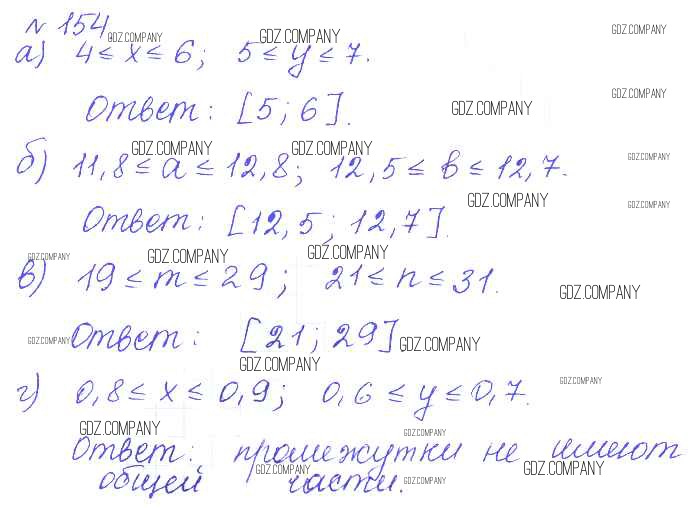 № 154
GDZ.COMPANY GDZ.COMPANY GDZ.COMPANY
а) 4 ≤ x ≤ 6; 5 ≤ y ≤ 7.
GDZ.COMPANY
Ответ: [5; 6].
GDZ.COMPANY
GDZ.COMPANY GDZ.COMPANY GDZ.COMPANY
б) 11,8 ≤ a ≤ 12,8; 12,5 ≤ в ≤ 12,7.
GDZ.COMPANY GDZ.COMPANY
Ответ: [12,5; 12,7].
GDZ.COMPANY GDZ.COMPANY GDZ.COMPANY
в) 19 ≤ m ≤ 29; 21 ≤ n ≤ 31.
GDZ.COMPANY
GDZ.COMPANY Ответ: [21; 29] GDZ.COMPANY
GDZ.COMPANY GDZ.COMPANY
г) 0,8 ≤ x ≤ 0,9; 0,6 ≤ y ≤ 0,7.
GDZ.COMPANY GDZ.COMPANY
Ответ: промежутки не имеют
GDZ.COMPANY GDZ.COMPANY
общей части.
GDZ.COMPANY